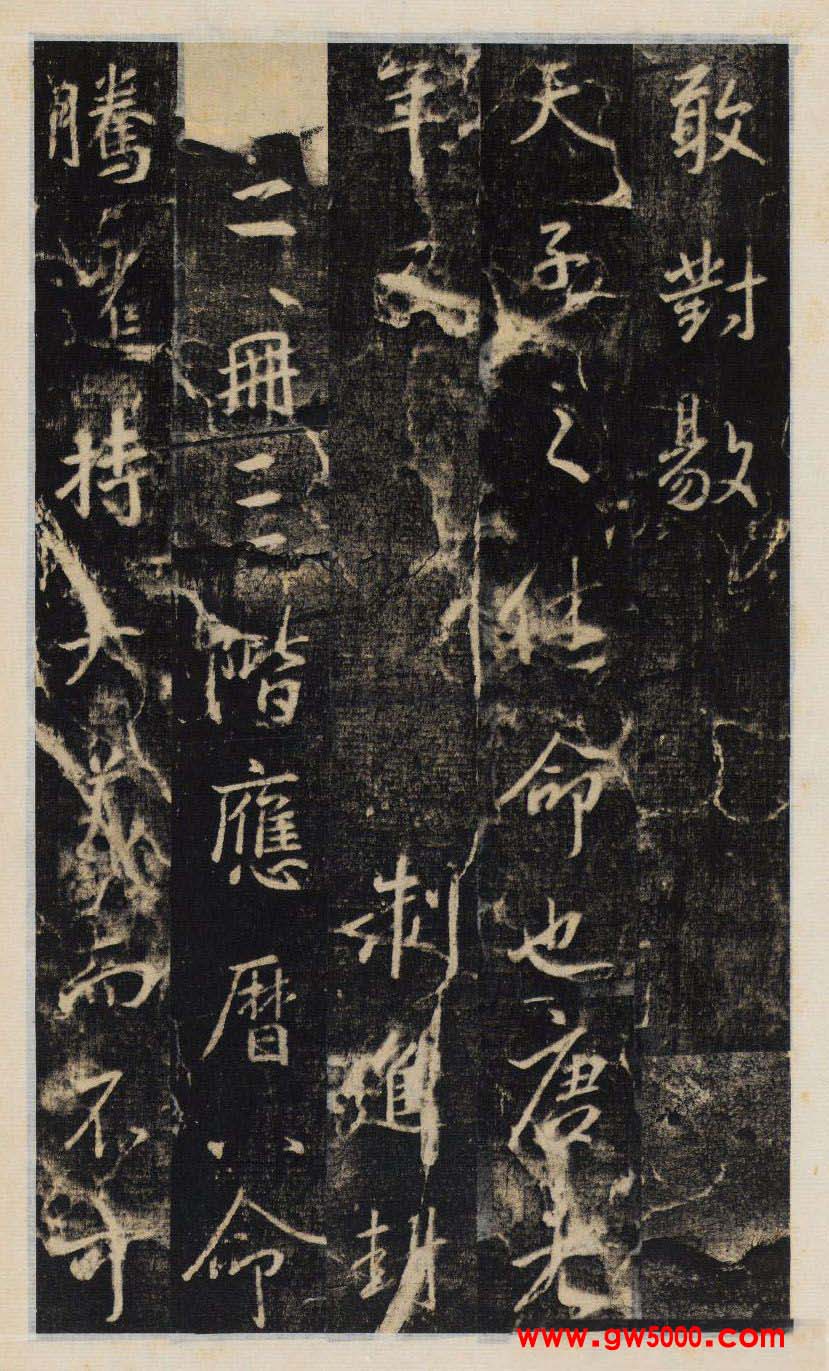 敢對敭
天子之休命也唐元
年制進封
二冊二三階應曆八命
騰持大義而不可
www.gw5000.com